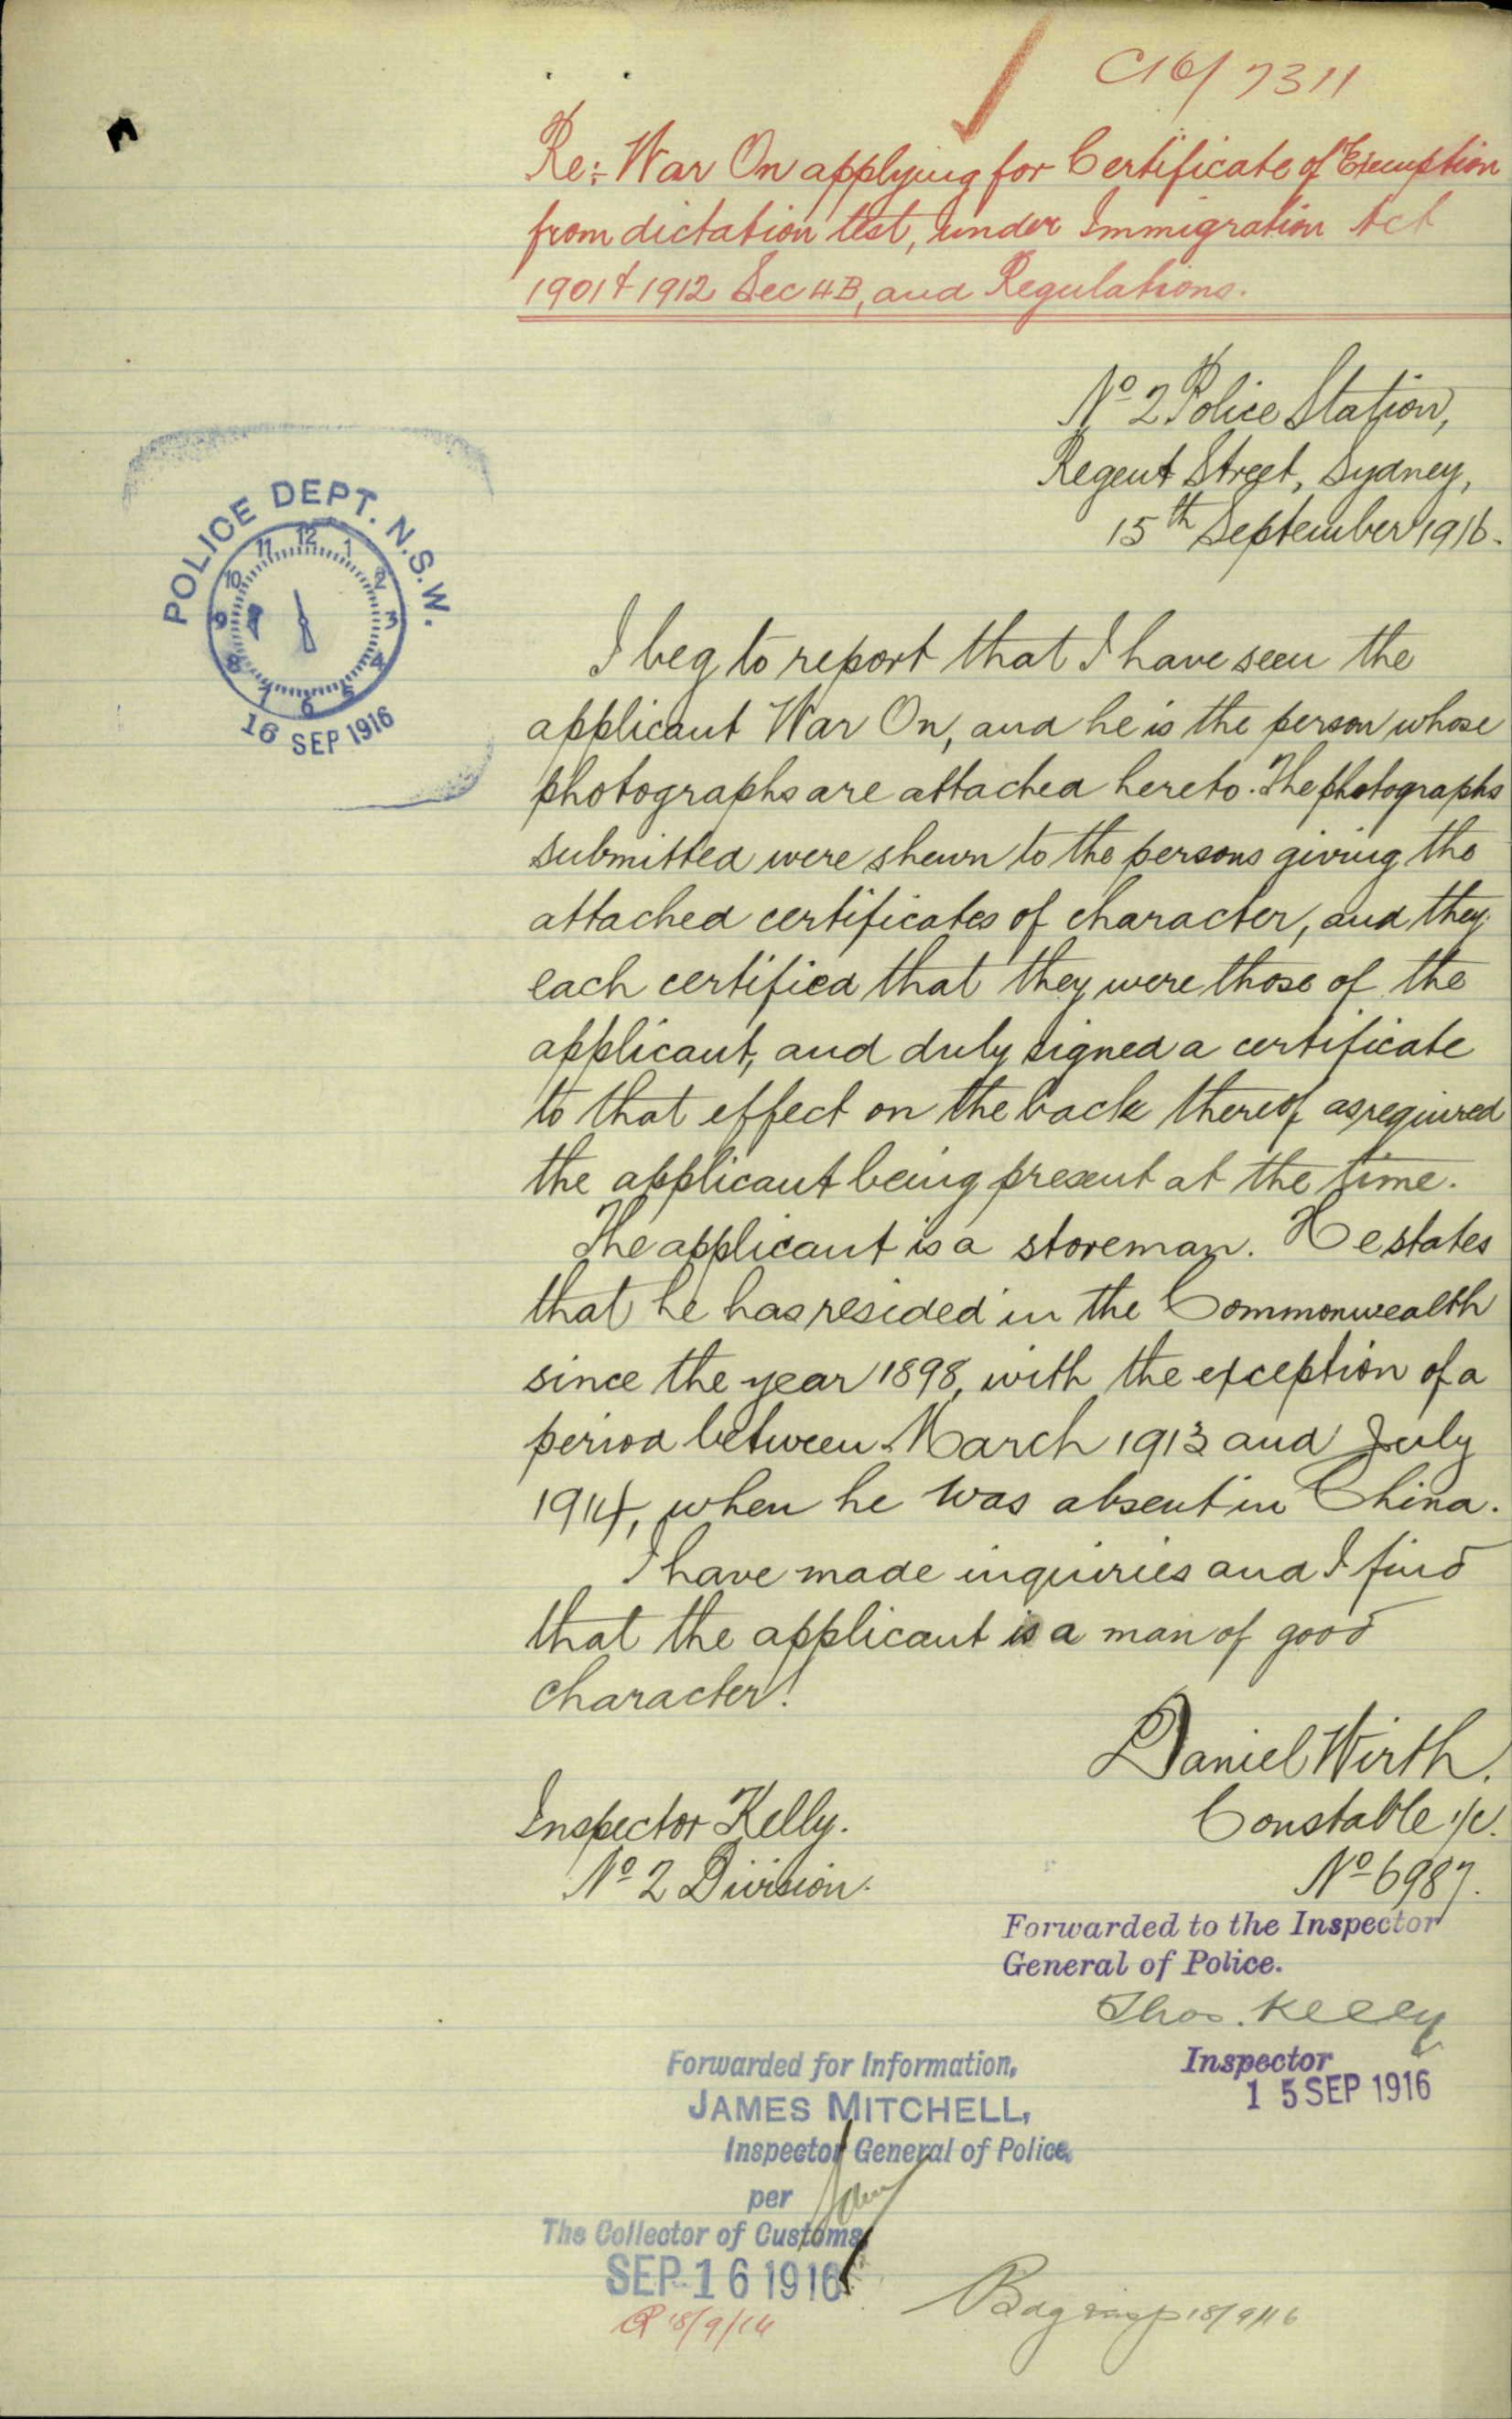 C16/7311
Re:- War On applying for Certificate of Exemption
from dictation test, under Immigration Act
1901 & 1912 Sec 4B, and Regulations.
No 2 Police Station,
Regent Street, Sydney,
15th September 1916.
POLICE DEPT. N.S.W.
12 1 2 3 4 5 6 7 8 9 10 11
16 SEP 1916
I beg to report that I have seen the
applicant War On, and he is the person whose
photographs are attached hereto. The photographs
submitted were shewn to the persons giving the
attached certificates of character, and they
each certified that they were those of the
applicant, and duly signed a certificate
to that effect on the back thereof as required
the applicant being present at the time.
The applicant is a storeman. He states
that he has resided in the Commonwealth
since the year 1898, with the exception of a
period between March 1913 and July
1914, when he was absent in China.
I have made inquiries and I find
that the applicant is a man of good
character.
Daniel Wirth.
Constable 1/c.
No 6987.
Inspector Kelly.
No 2 Division.
Forwarded to the Inspector
General of Police.
Thos. Kelly
Inspector
15 SEP 1916
Forwarded for Information,
JAMES MITCHELL,
Inspector General of Police.
per
The Collector of Customs
SEP 16 1916
18/9/16
18/9/16